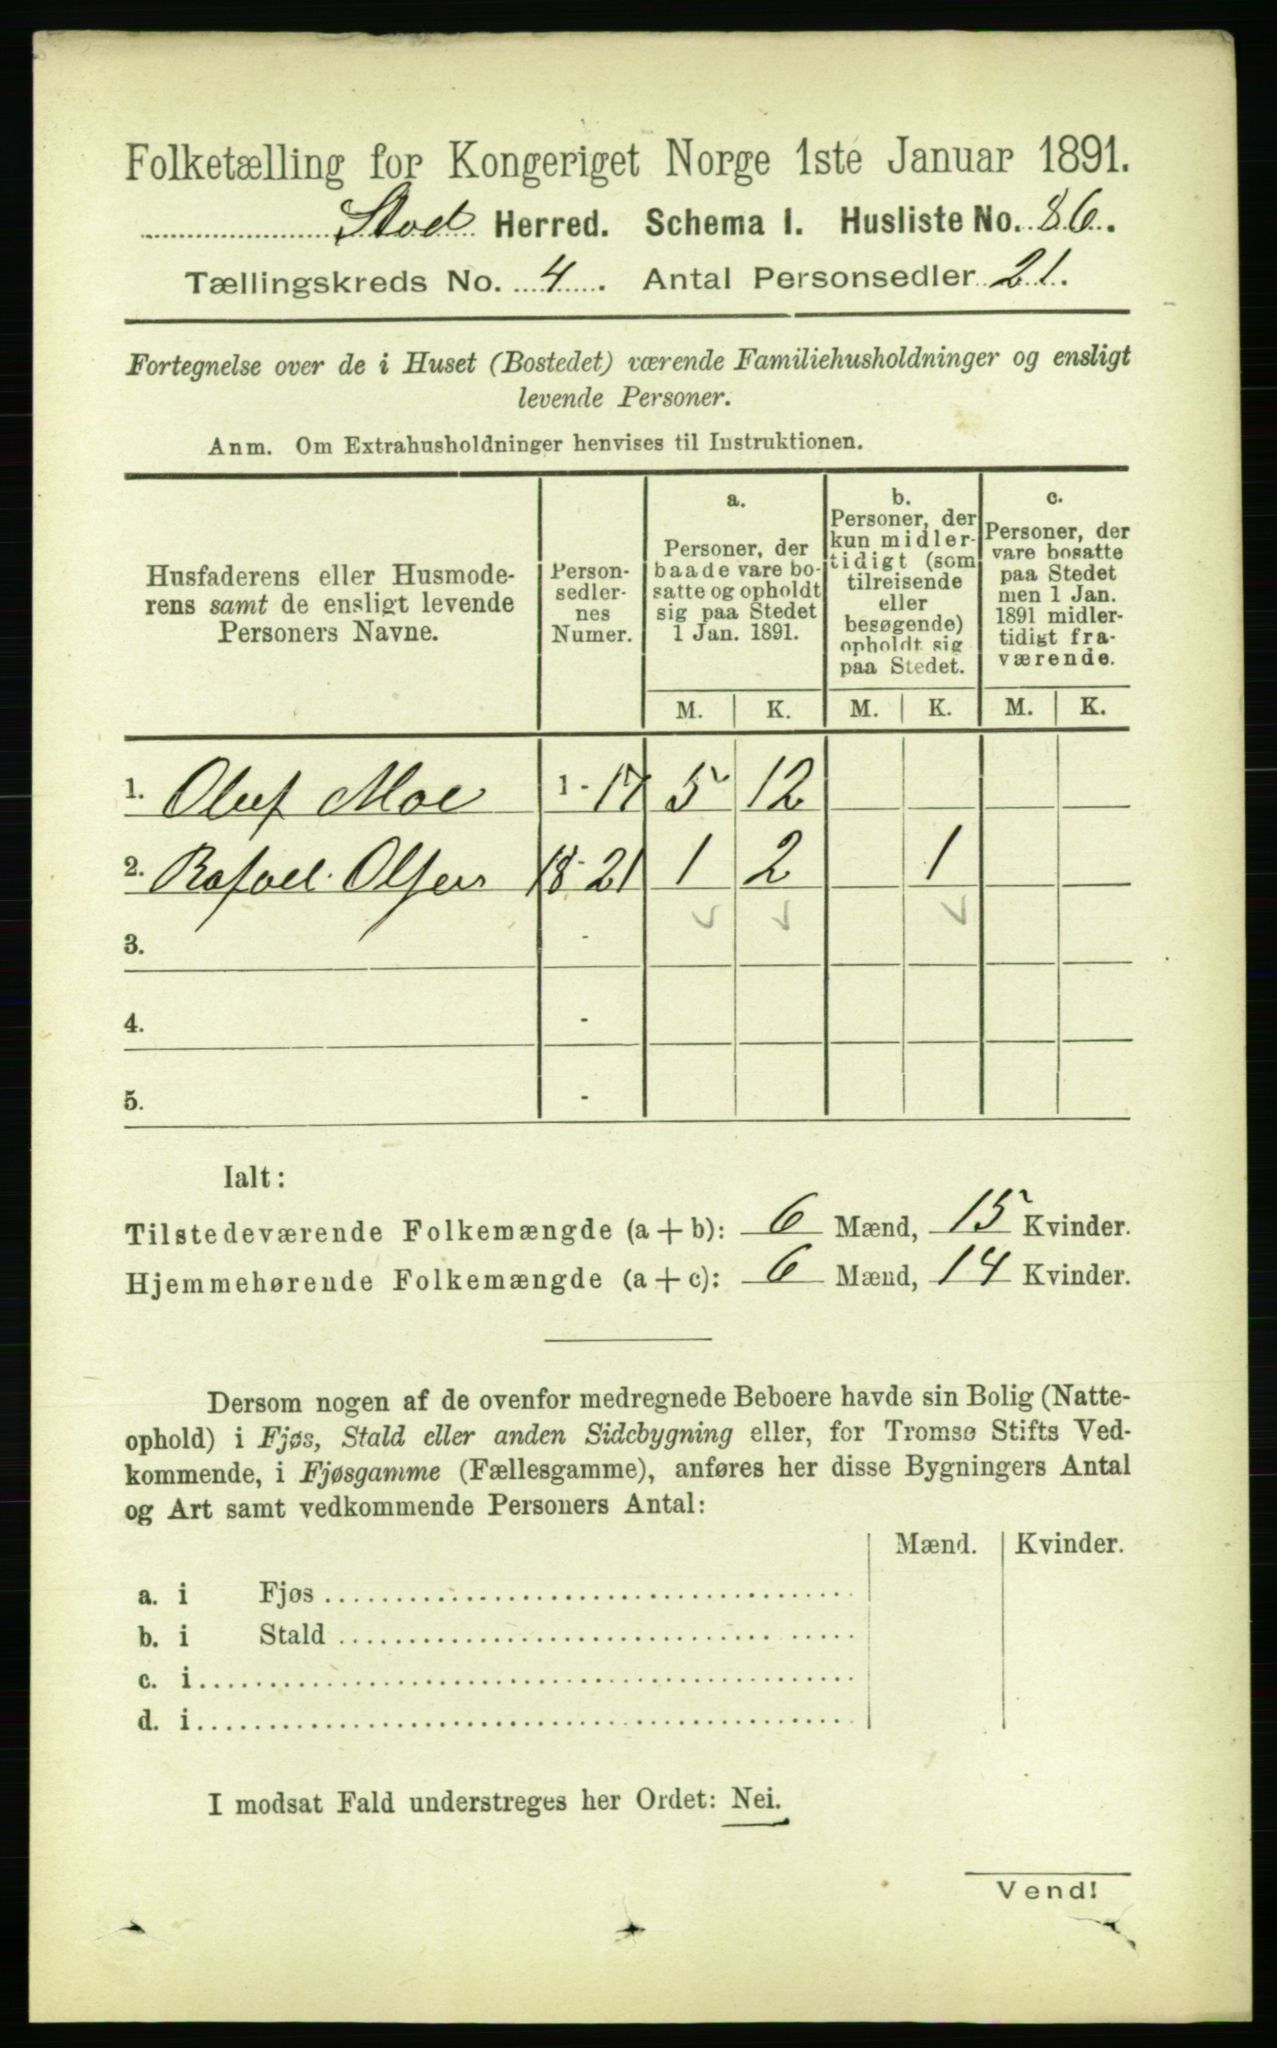 Folketælling for Kongeriget Norge 1ste Januar 1891.
Stod Herred. Schema I. Husliste No. 86.
Tællingskreds No. 4. Antal Personsedler 21.
Fortegnelse over de i Huset (Bostedet) værende Familiehusholdninger og ensligt
levende Personer.
Anm. Om Extrahusholdninger henvises til Instruktionen.
Husfaderens eller Husmode-
rens samt de ensligt levende
Personers Navne.
Person-
sedler-
nes
Numer.
a.
Personer, der
baade vare bo-
satte og opholdt
sig paa Stedet
1 Jan. 1891.
b.
Personer, der
kun midler-
tidigt (som
tilreisende
eller
besøgende)
opholdt sig
paa Stedet.
c.
Personer, der
vare bosatte
paa Stedet
men 1 Jan.
1891 midler-
tidigt fra-
værende.
M. K. M. K. M. K.
1. Oluf Moe 1 - 17 5 12
2. Rafael Olsen 18 - 21 1 2 1
3. -
4. -
5. -
Ialt:
Tilstedeværende Folkemængde (a + b): 6 Mænd, 15 Kvinder.
Hjemmehørende Folkemængde (a + c): 6 Mænd, 14 Kvinder.
Dersom nogen af de ovenfor medregnede Beboere havde sin Bolig (Natte-
ophold) i Fjøs, Stald eller anden Sidebygning eller, for Tromsø Stifts Ved-
kommende, i Fjøsgamme (Fællesgamme), anføres her disse Bygningers Antal
og Art samt vedkommende Personers Antal:
Mænd. Kvinder.
a. i Fjøs
b. i Stald
c. i
d. i
I modsat Fald understreges her Ordet: Nei.
Vend!